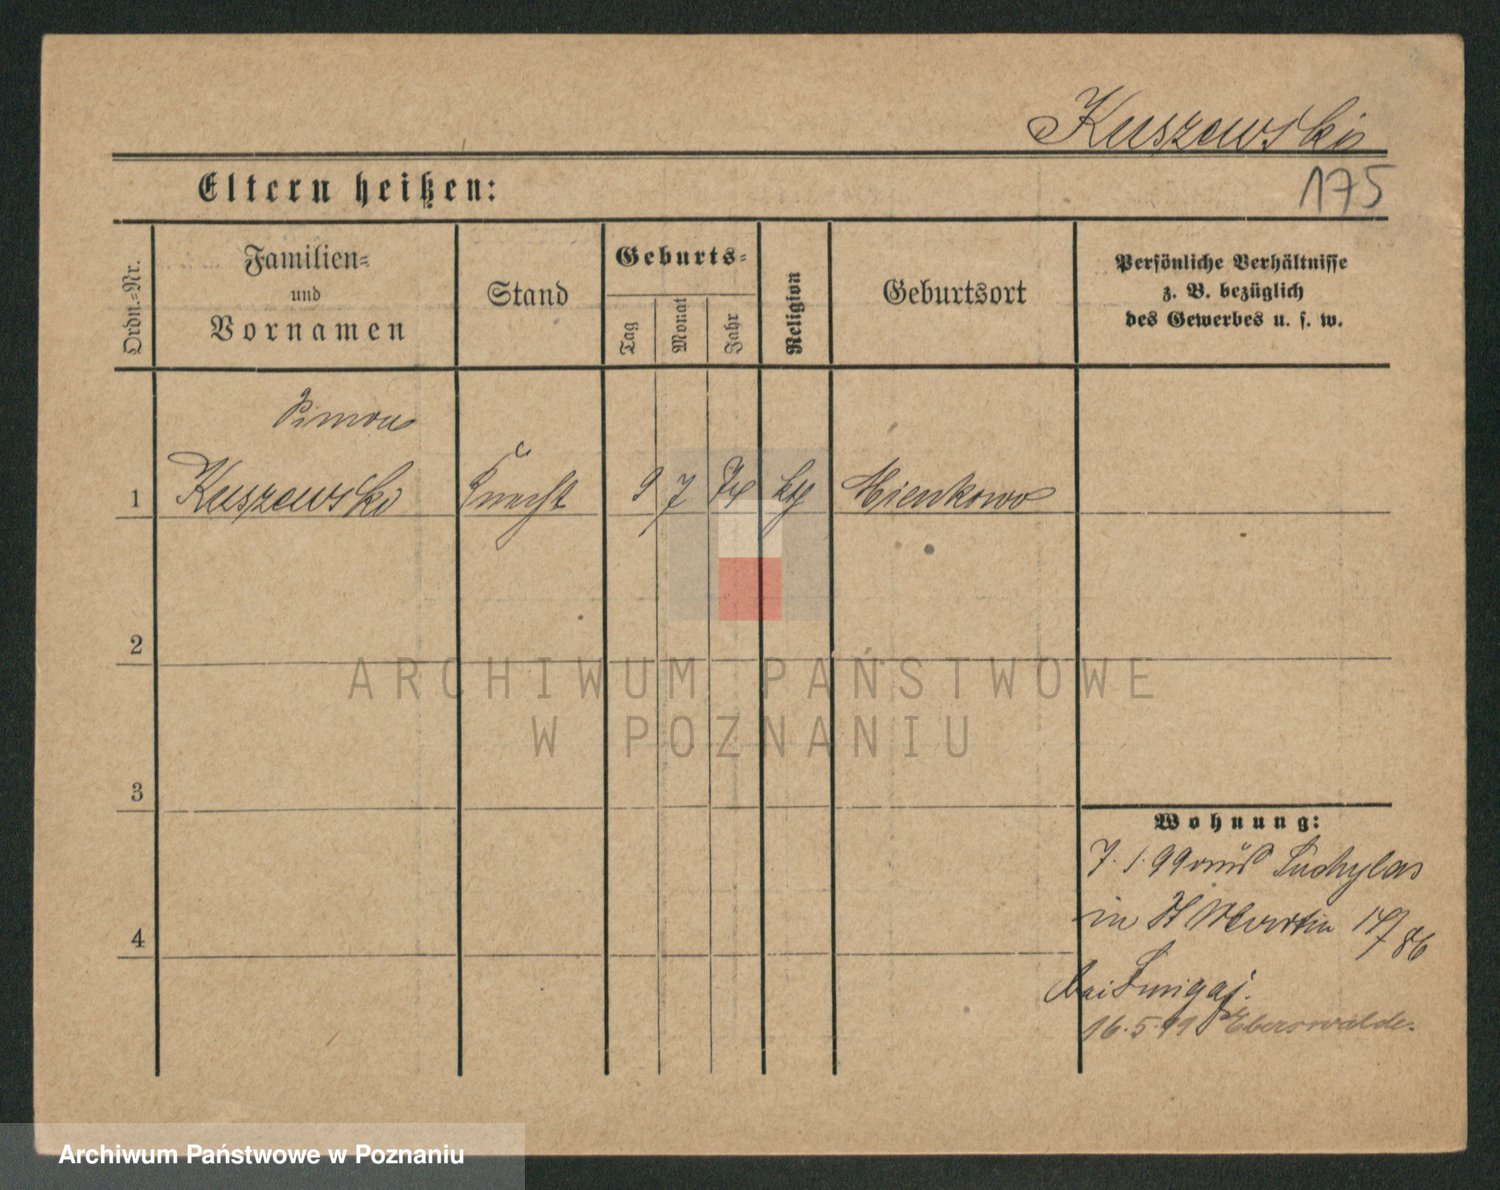 Kuszewski
Eltern heißen:
175
Ordn.=Nr.
Familien=
und
Vornamen
Stand
Geburts=
Tag
Monat
Jahr
Religion
Geburtsort
Persönliche Verhältnisse
z. B. bezüglich
des Gewerbes u. s. w.
Simon
1 Kuszewski Knecht 9 7 kth
2
3
4
Wohnung:
7.1.99 aus Suchylas
in St Martin
bei Smigaj.
16.5.99 Eberswalde.
ARCHIWUM PAŃSTWOWE
W POZNANIU
Archiwum Państwowe w Poznaniu